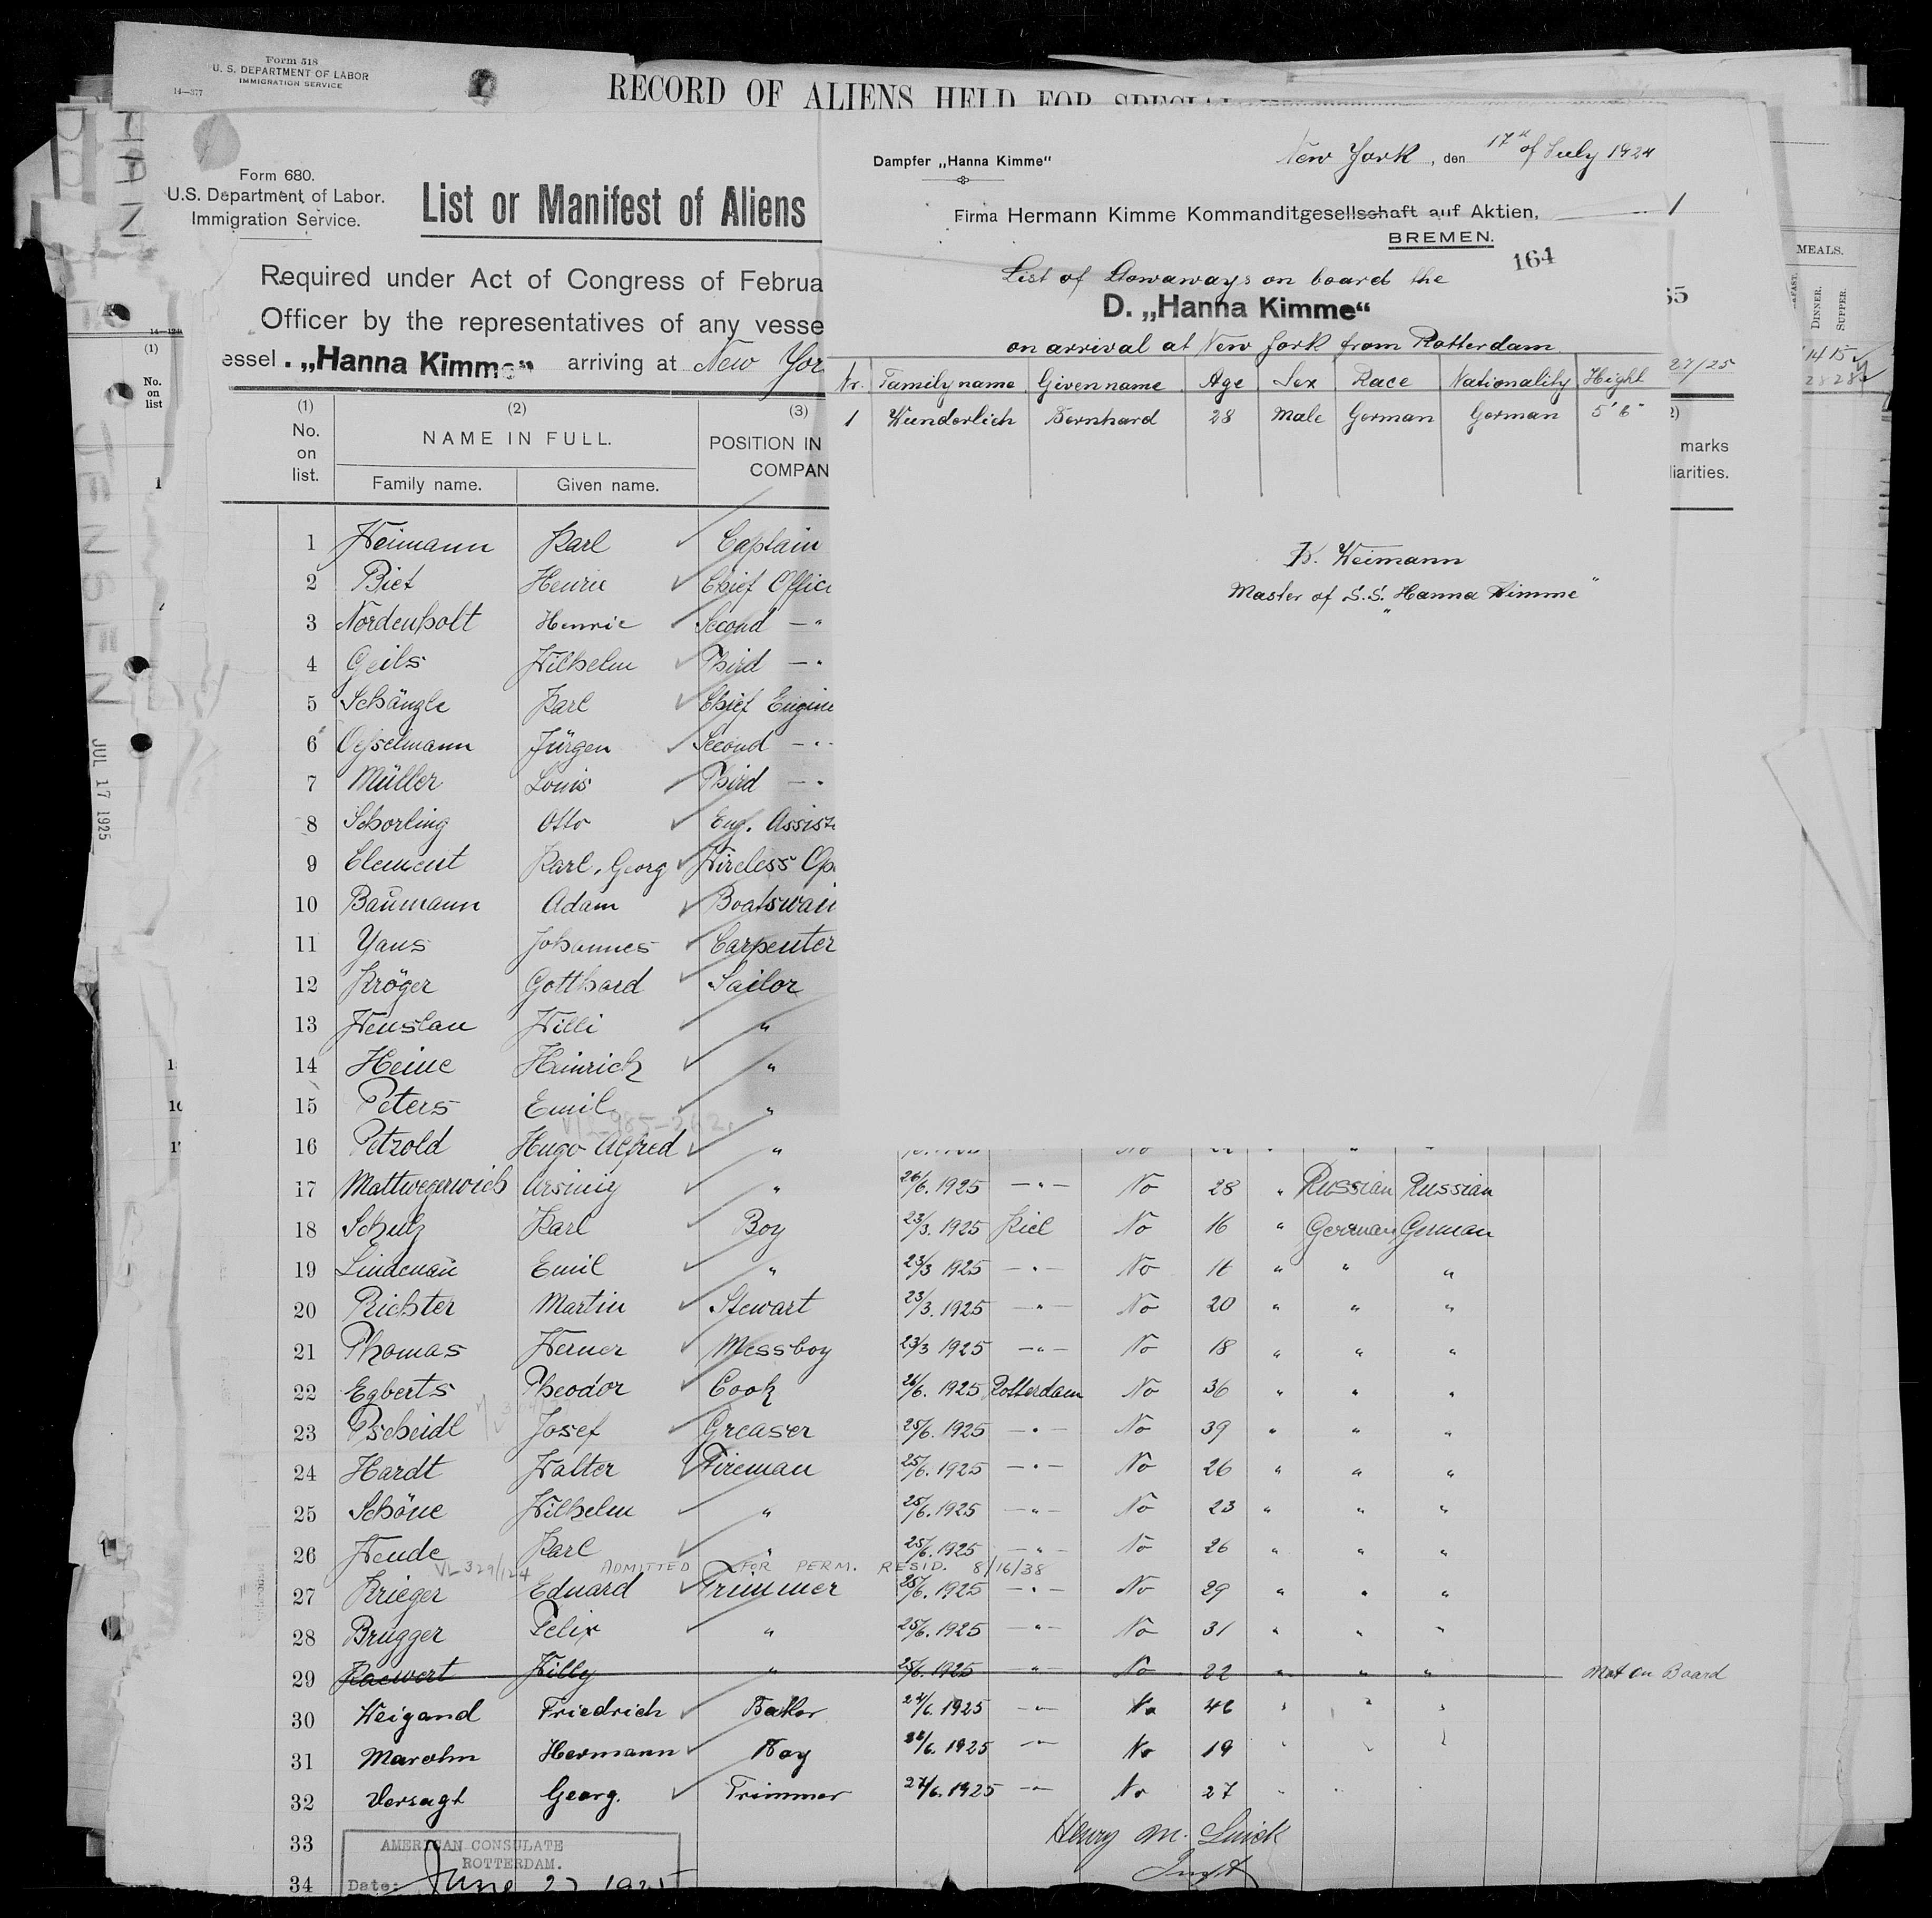 Form 518
U. S. DEPARTMENT OF LABOR
IMMIGRATION SERVICE
14—377
RECORD OF ALIENS HELD FOR SPECIAL
Form 680.
U.S. Department of Labor.
Immigration Service.
List or Manifest of Aliens
Required under Act of Congress of Februa
Officer by the representatives of any vesse
essel . „Hanna Kimme“ arriving at New Yor
Dampfer „Hanna Kimme“
New York, den 17th of July 1924
Firma Hermann Kimme Kommanditgesellschaft auf Aktien, 1
BREMEN.
164
List of Stowaways on board the
D. „Hanna Kimme“
on arrival at New York from Rotterdam
Nr. Family name Given name Age Sex Race Nationality Hight
1 Wunderlich Bernhard 28 Male German German 5'6"
K. Weimann
Master of S.S. "Hanna Kimme"
35
27/25
2)
marks
liarities.
MEALS.
DINNER.
SUPPER.
14 15
28 28
(1)
No.
on
list
JENSEN
JUL 17 1925
(1) No. on list.
(2) NAME IN FULL.
Family name. Given name.
(3) POSITION IN
COMPAN
1 Weimann Karl Captain
2 Biet Henri Chief Offic
3 Nordenholt Henric Second — "
4 Geils Wilhelm Third — "
5 Schänzle Karl Chief Engine
6 Oesselmann Jürgen Second — "
7 Müller Louis Third — "
8 Schorling Otto Eng. Assist
9 Clement Karl, Georg Wireless Op
10 Baumann Adam Boatswain
11 Yans Johannes Carpenter
12 Kröger Gotthard Sailor
13 Wenslau Willi "
14 Heine Heinrich "
15 Peters Emil "
16 Petzold Hugo Alfred "
17 Mattwegerwich Arsiniy " 26/6. 1925 — " — No 28 " Russian Russian
18 Schulz Karl Boy 23/3. 1925 Kiel No 16 " German German
19 Lindenau Emil " 23/3 1925 — " — No 16 " " "
20 Richter Martin Stewart 23/3. 1925 — " — No 20 " " "
21 Thomas Werner Messboy 23/3 1925 — " — No 18 " " "
22 Egberts Theodor Cook 26/6. 1925 Rotterdam No 36 " " "
23 Pscheidl Josef Greaser 25/6. 1925 — " — No 39 " " "
24 Hardt Walter Fireman 25/6. 1925 — " — No 26 " " "
25 Schöne Wilhelm " 25/6. 1925 — " — No 23 " " "
26 Wende Karl " 25/6. 1925 — " — No 26 " " "
VL 329/124 ADMITTED FOR PERM. RESID. 8/16/38
27 Krieger Eduard Trimmer 25/6. 1925 — " — No 29 " " "
28 Brugger Felix " 25/6. 1925 — " — No 31 " " "
29 Raewert Willy " 25/6. 1925 — " — No 22 " " " Not on Board
30 Weigand Friedrich 24/6. 1925 — " — No 46 " " "
31 Marohn Hermann Boy 1925 — " — No 19 " " "
32 Versagt Georg. Trimmer 27/6. 1925 — " — No 27 " "
33 Henry M.
34
AMERICAN CONSULATE
ROTTERDAM.
Date: June 27 1925